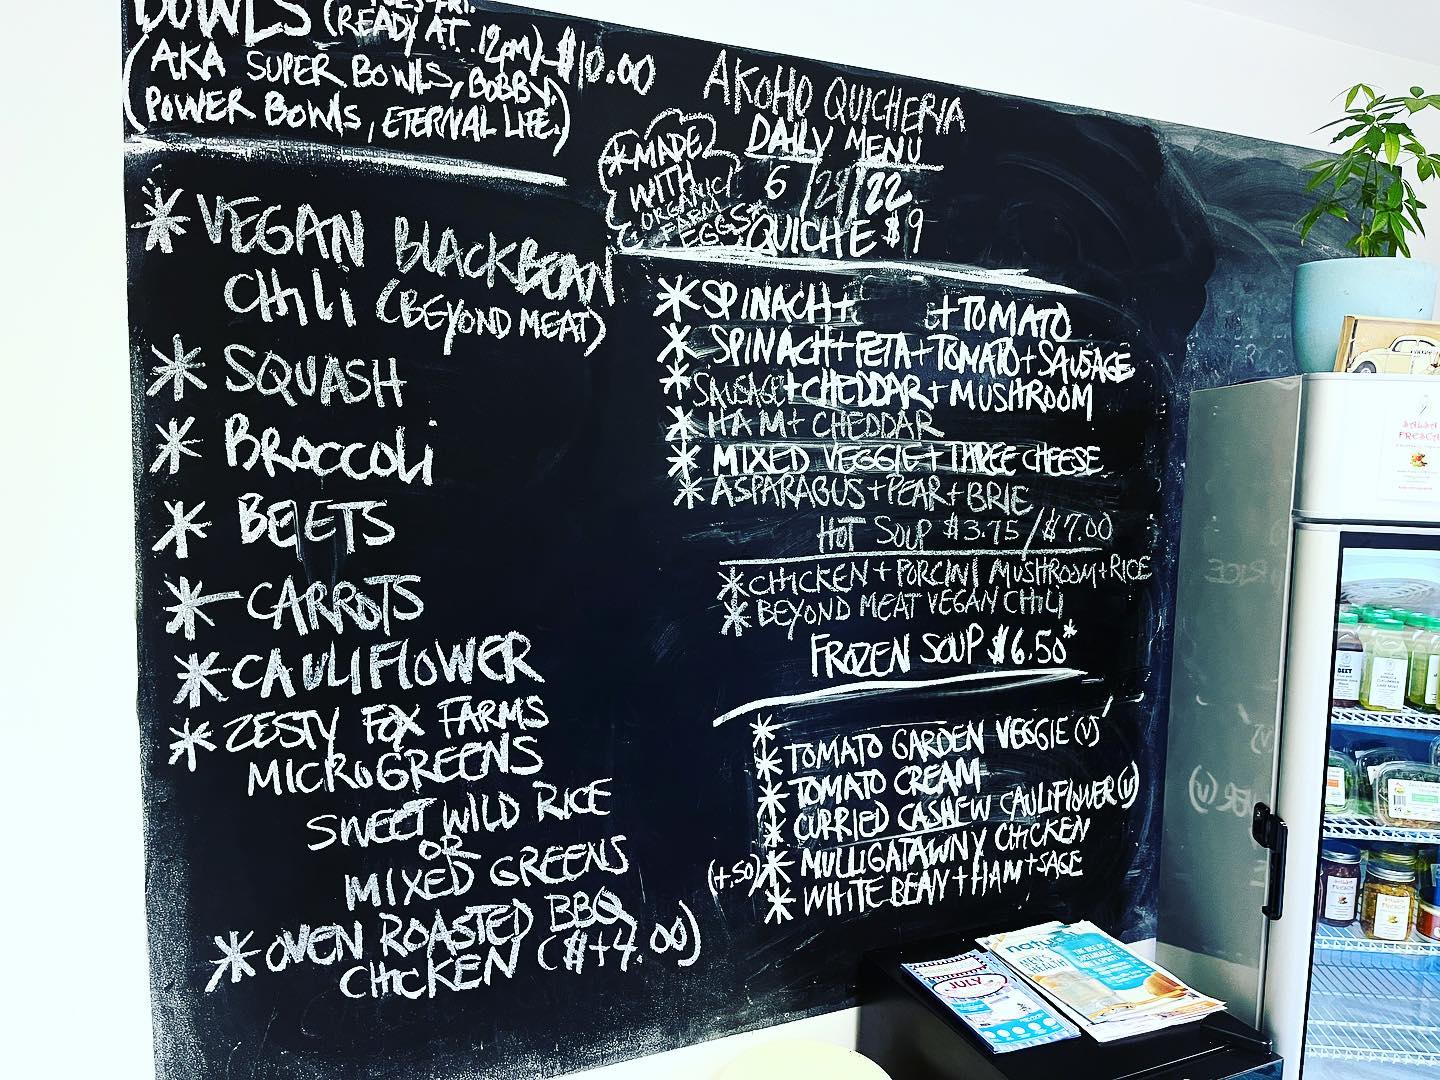 BOWLS TUES-FRI.
(READY AT 12PM) $10.00
(AKA SUPER BOWLS, BOBBY,
POWER BOWLS, ETERNAL LIFE.)
* VEGAN BLACKBEAN
CHILI (BEYOND MEAT)
* SQUASH
* BROCCOLI
* BEETS
* CARROTS
* CAULIFLOWER
* ZESTY FOX FARMS
MICROGREENS
SWEET WILD RICE
OR
MIXED GREENS
* OVEN ROASTED BBQ
CHICKEN ($+4.00)
AKOHO QUICHERIA
DAILY MENU
6/29/22
*MADE
WITH
ORGANIC
FARM
EGGS*
QUICHE $9
* SPINACH+ +TOMATO
* SPINACH+FETA+TOMATO+SAUSAGE
* SAUSAGE+CHEDDAR+MUSHROOM
* HAM+CHEDDAR
* MIXED VEGGIE+THREE CHEESE
* ASPARAGUS+PEAR+BRIE
HOT SOUP $3.75/$7.00
* CHICKEN+PORCINI MUSHROOM+RICE
* BEYOND MEAT VEGAN CHILI
FROZEN SOUP $6.50*
*
* TOMATO GARDEN VEGGIE (V)
* TOMATO CREAM
* CURRIED CASHEW CAULIFLOWER (V)
* MULLIGATAWNY CHICKEN
(+.50) * WHITE BEAN+HAM+SAGE
SALSA
FRESCA
BEET
JULY